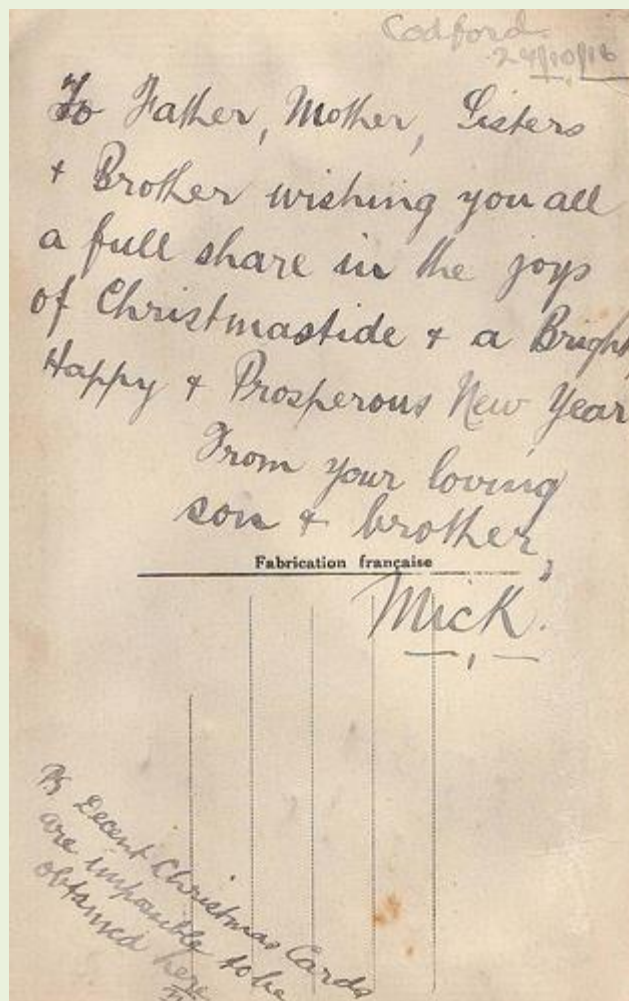 Codford
24/10/16
To Father, Mother, Sisters
& Brother wishing you all
a full share in the joys
of Christmastide & a Bright,
Happy & Prosperous New Year
From your loving
son & brother,
Fabrication française
Mick.
PS Decent Christmas Cards
are impossible to be
obtained here